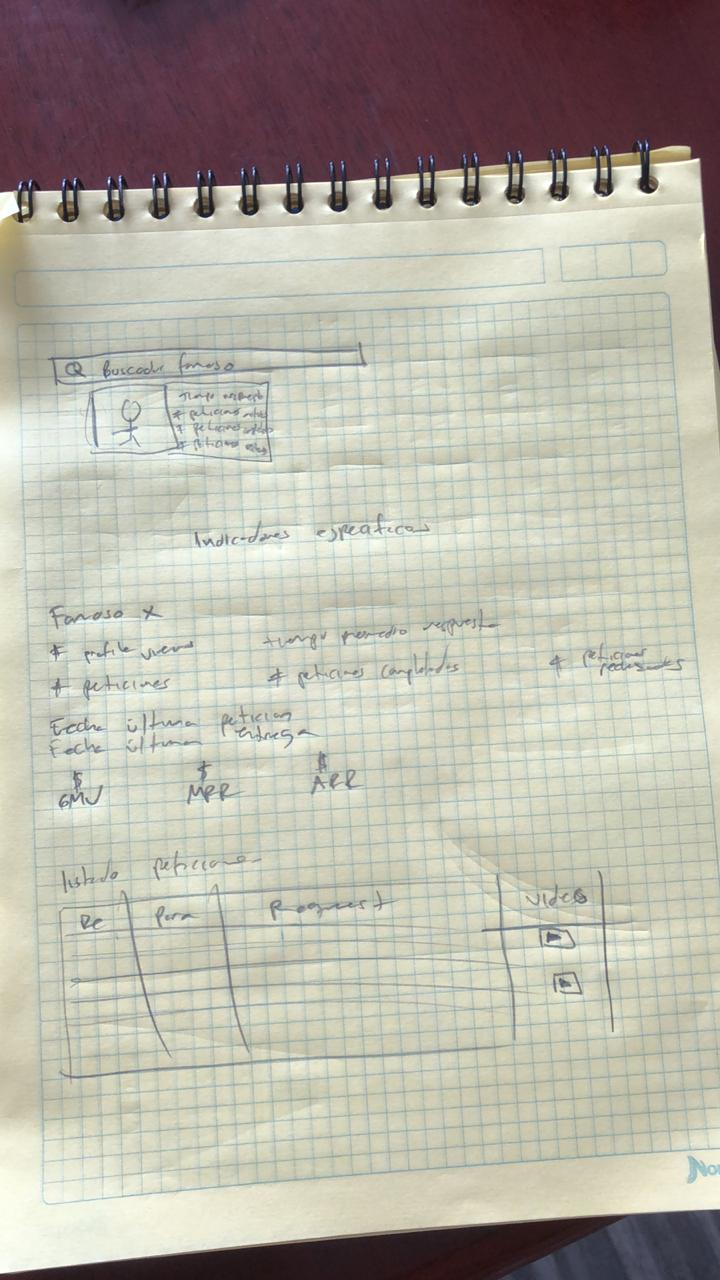 Q Buscador famoso
tiempo respuesta
# peticiones
# peticiones
# peticiones
Indicadores especificos
Famoso X
# profile views
tiempo promedio respuesta
# peticiones
# peticiones completadas
# peticiones
Fecha última petición
Fecha última entrega
$ GMV
$ MRR
$ ARR
listado peticiones
De Para Request video
Nor